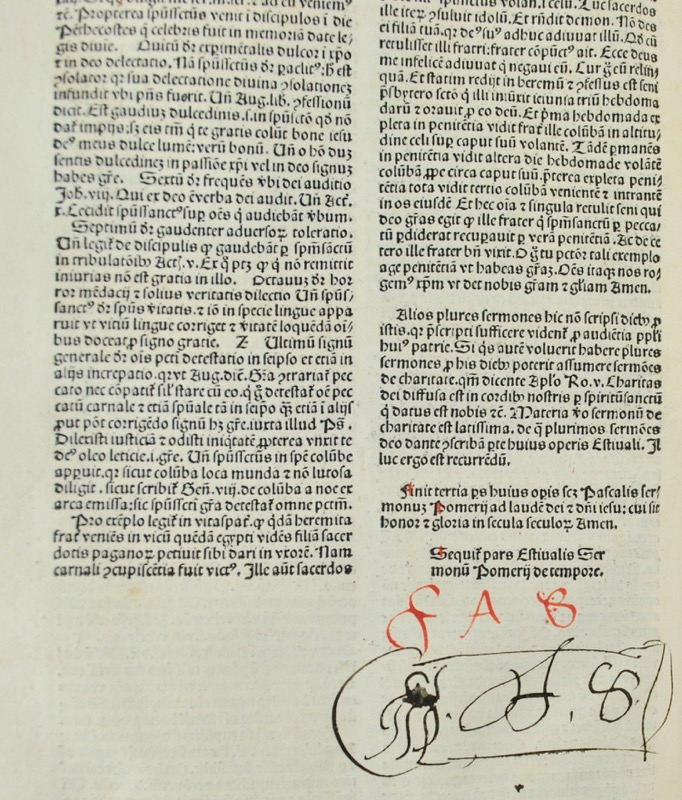 tꝰ. Propterea spũssctũs venit ĩ discipulos ĩ die
Pẽthecostes q̃ celebris fuit in memoriã date le/
gis diuie. Quĩtũ ðr exꝑimẽtalis dulcor ĩ xp̃o
⁊ in deo delectatio. Nã spũssctũs ðr paclitꝰ: h̃ est
ꝯsolator qꝛ sua delectatione diuina ꝯsolationez
infundit vbi pñs fuerit. Uñ Aug. lib. ꝯfessionũ
dicit. Est gaudiũ dulcedinis. s. in spũsctõ qð nõ
dat̃ impijs: sꝫ eis tm̃ q̃ te gratis colũt bone iesu
deꝰ meus dulce lumẽ: verũ bonũ. Uñ o hõ duʒ
sentis dulcedineʒ in passiõe xp̃i vel in deo signuʒ
habes gr̃e. Sextũ ðr frequẽs ṽbi dei auditio
Joh. viij. Qui ex deo ẽ verba dei audit. Uñ Actꝭ.
x. Cecidit spũssanctꝰ suꝑ oẽs q̃ audiebãt ṽbum.
Septimũ ðr gaudenter aduersoꝝ toleratio.
Uñ legit̃ de discipulis ꝙ gaudebãt ꝑ spm̃sãctũ
in tribulatõibꝰ Actꝭ. v. Ex q̃ ptʒ ꝙ q̃ nõ remittit
iniurias nõ est gratia in illo. Octauuʒ ðr hor
ror mẽdacij ⁊ solius veritatis dilectio Uñ spũs/
sanctꝰ ðr spũs ṽitatis. ⁊ iõ in specie lingue appa
ruit vt vitiũ lingue corriget ⁊ ṽitatẽ loquẽda oĩ/
bus doceat ꝓ signo gratie. Z Ultimũ signũ
generale ðr oĩs pcti detestatio in seipso et etiã in
alijs increpatio. qꝛ vt Aug. dic̃. Gr̃a ꝯtrariat̃ pec
cato nec cõpatit̃ sil̃ stare cũ eo. q̃ g̃ detestat̃ oẽ pec
catũ carnale ⁊ etiã spũale tã in seipo q̃ꝫ etiã ĩ alijs
ꝓut põt corrigẽdo signũ hʒ gr̃e. iuxta illud Ps̃.
Dilexisti iusticiã ⁊ odisti iniq̃tatẽ ꝓpterea vnxit te
deꝰ oleo leticie. i. gr̃e. Uñ spũssctũs in spẽ colũbe
apꝑuit. qꝛ sicut colũba loca munda ⁊ nõ lutosa
diligit. sicut scribit̃ Geñ. viij. de colũba a noe ex
arca emissa: sic spũsscti gr̃a detestat̃ omne pctm̃.
Pro exẽplo legit̃ in vitaspat̃. ꝙ q̃dã heremita
frat̃ veniẽs in vicũ quẽdã egypti vidẽs filiã sacer
dotis paganoꝝ petiuit sibi dari in vxorẽ. Nam
carnali ꝯcupiscẽtia fuit victꝰ. Ille aũt sacerdos
ille itez ꝯsuluit idolũ. Et rñdit demon. Nõ des
ei filiã tuã. qꝛ deꝰ suꝰ adhuc adiuuat illũ. Qð cũ
retulisset illi fratri: frater cõpũctꝰ ait. Ecce deus
me infelicẽ adiuuat q̃ negaui eũ. Cur g̃ eũ relin/
quã. Et statim redijt in heremũ ⁊ ꝯfessus est seni
p̃sbytero sctõ q̃ illi iniũxit ieiunia triũ hebdoma
darũ ⁊ orauit ꝓ eo deũ. Et p̃ma hebdomada ex
pleta in penitẽtia vidit frat̃ ille colũbã in altitu/
dine celi sup caput suũ volantẽ. Tãdẽ ꝑmanẽs
in penitẽtia vidit altera die hebdomade volãtẽ
colũbã ꝓpe circa caput suũ. p̃terea expleta peni/
tẽtia tota vidit tertio colũbã venientẽ ⁊ intrantẽ
in os eiusdẽ Et hec oĩa ⁊ singula retulit seni qui
deo gr̃as egit ꝙ ille frater q̃ spm̃sanctũ ꝑ pecca/
tũ ꝑdiderat recuꝑauit ꝑ verã penitẽtiã. Ac de ce
tero ille frater bñ vixit. O g̃ tu pctõr tali exemplo
age penitẽtiã vt habeas gr̃aʒ. Oẽs itaqʒ nos ro/
gemꝰ xp̃m vt det nobis gr̃am ⁊ gl̃iam Amen.
Alios plures sermones hic nõ scripsi diebꝰ ꝓ
istis. qꝛ p̃scripti sufficere vident̃ ꝓ audiẽtia ppl̃i
huiꝰ patrie. Si q̃s autẽ voluerit habere plures
sermones ꝓ his diebꝰ poterit assumere sermões
de charitate. qm̃ dicente Apl̃o Ro. v. Charitas
dei diffusa est in cordibꝰ nostris ꝑ spiritũsanctũ
q̃ datus est nobis ⁊c̃. Materia ṽo sermonũ de
charitate est latissima. de q̃ plurimos sermões
deo dante ꝯscribã ꝑte huius operis Estiuali. Il
luc ergo est recurrẽdũ.
Finit tertia ps huius opis scʒ Pascalis ser/
monuʒ Pomerij ad laudẽ dei ⁊ dñi iesu: cui sit
honor ⁊ gloria in secula seculoꝝ Amen.
Sequit̃ pars Estiualis Ser
monũ Pomerij de tempore.
F A S
A. S